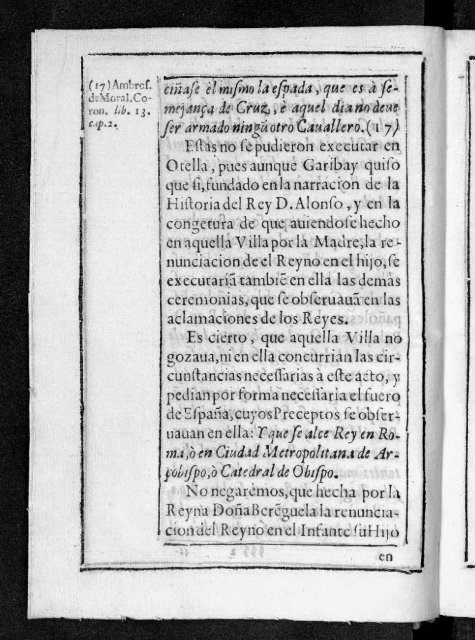 (17) Ambros.
de Moral. Co-
ron. lib. 13.
cap. 2.
ciñase èl mismo la espada, que es à se-
mejança de Cruz, è aquel dia no deue
ser armado ningũ otro Cauallero. (17)
Estas no se pudieron executar en
Otella, pues aunque Garibay quiso
que si, fundado en la narracion de la
Historia del Rey D. Alonso, y en la
congetura de que auiendose hecho
en aquella Villa por la Madre, la re-
nunciacion de el Reyno en el hijo, se
executariã tambiẽ en ella las demàs
ceremonias, que se obseruauã en las
aclamaciones de los Reyes.
Es cierto, que aquella Villa no
gozaua, ni en ella concurrian las cir-
cunstancias necessarias à este acto, y
pedian por forma necessaria el fuero
de España, cuyos Preceptos se obser-
uauan en ella: Y que se alce Rey en Ro-
ma, ò en Ciudad Metropolitana de Ar-
çobispo, ò Catedral de Obispo.
No negarèmos, que hecha por la
Reyna Doña Berẽguela la renuncia-
cion del Reyno en el Infante su Hijo
en